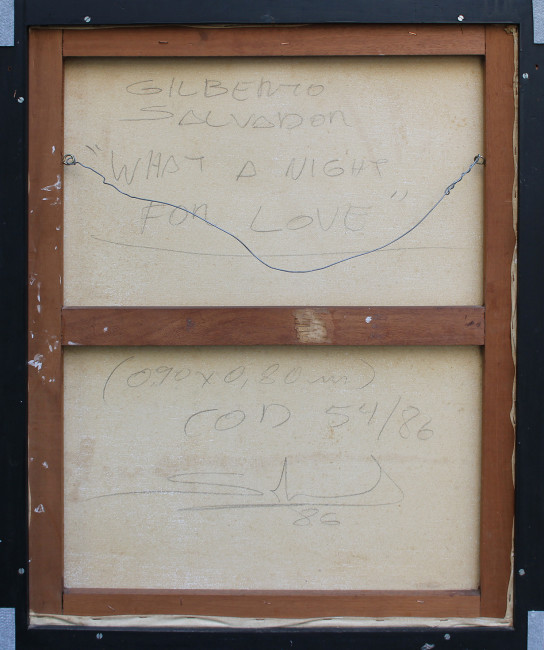 GILBERTO
SALVADOR
"WHAT A NIGHT
FOR LOVE"
(0,90 x 0,80 m)
COD 54/86
86